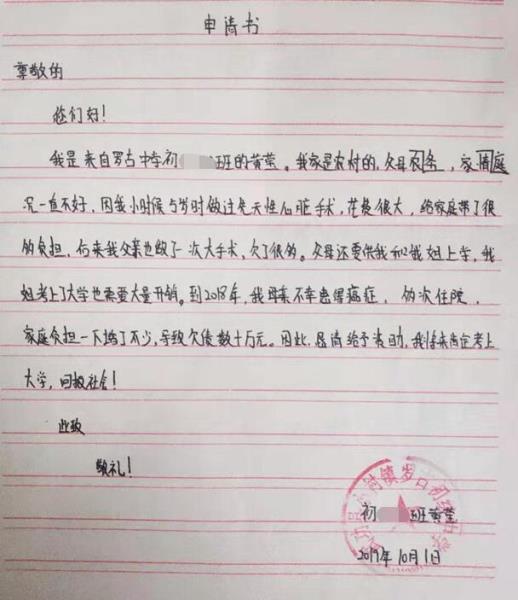 申请书
尊敬的
您们好!
我是来自罗古中学初 班的黄莹。我家是农村的,父母务农,家庭情
况一直不好,因我小时候5岁时做过先天性心脏手术,花费很大,给家庭带了很
的负担,后来我父亲也做了一次大手术,欠了很的。父母还要供我和我姐上学,我
姐考上了大学也需要大量开销。到2018年,我母亲不幸患得癌症, 的次住院,
家庭负担一下增了不少,导致欠债数十万元。因此,恳请给予资助,我将来肯定考上
大学,回报社会!
此致
敬礼!
初 班黄莹
2019年10月1日